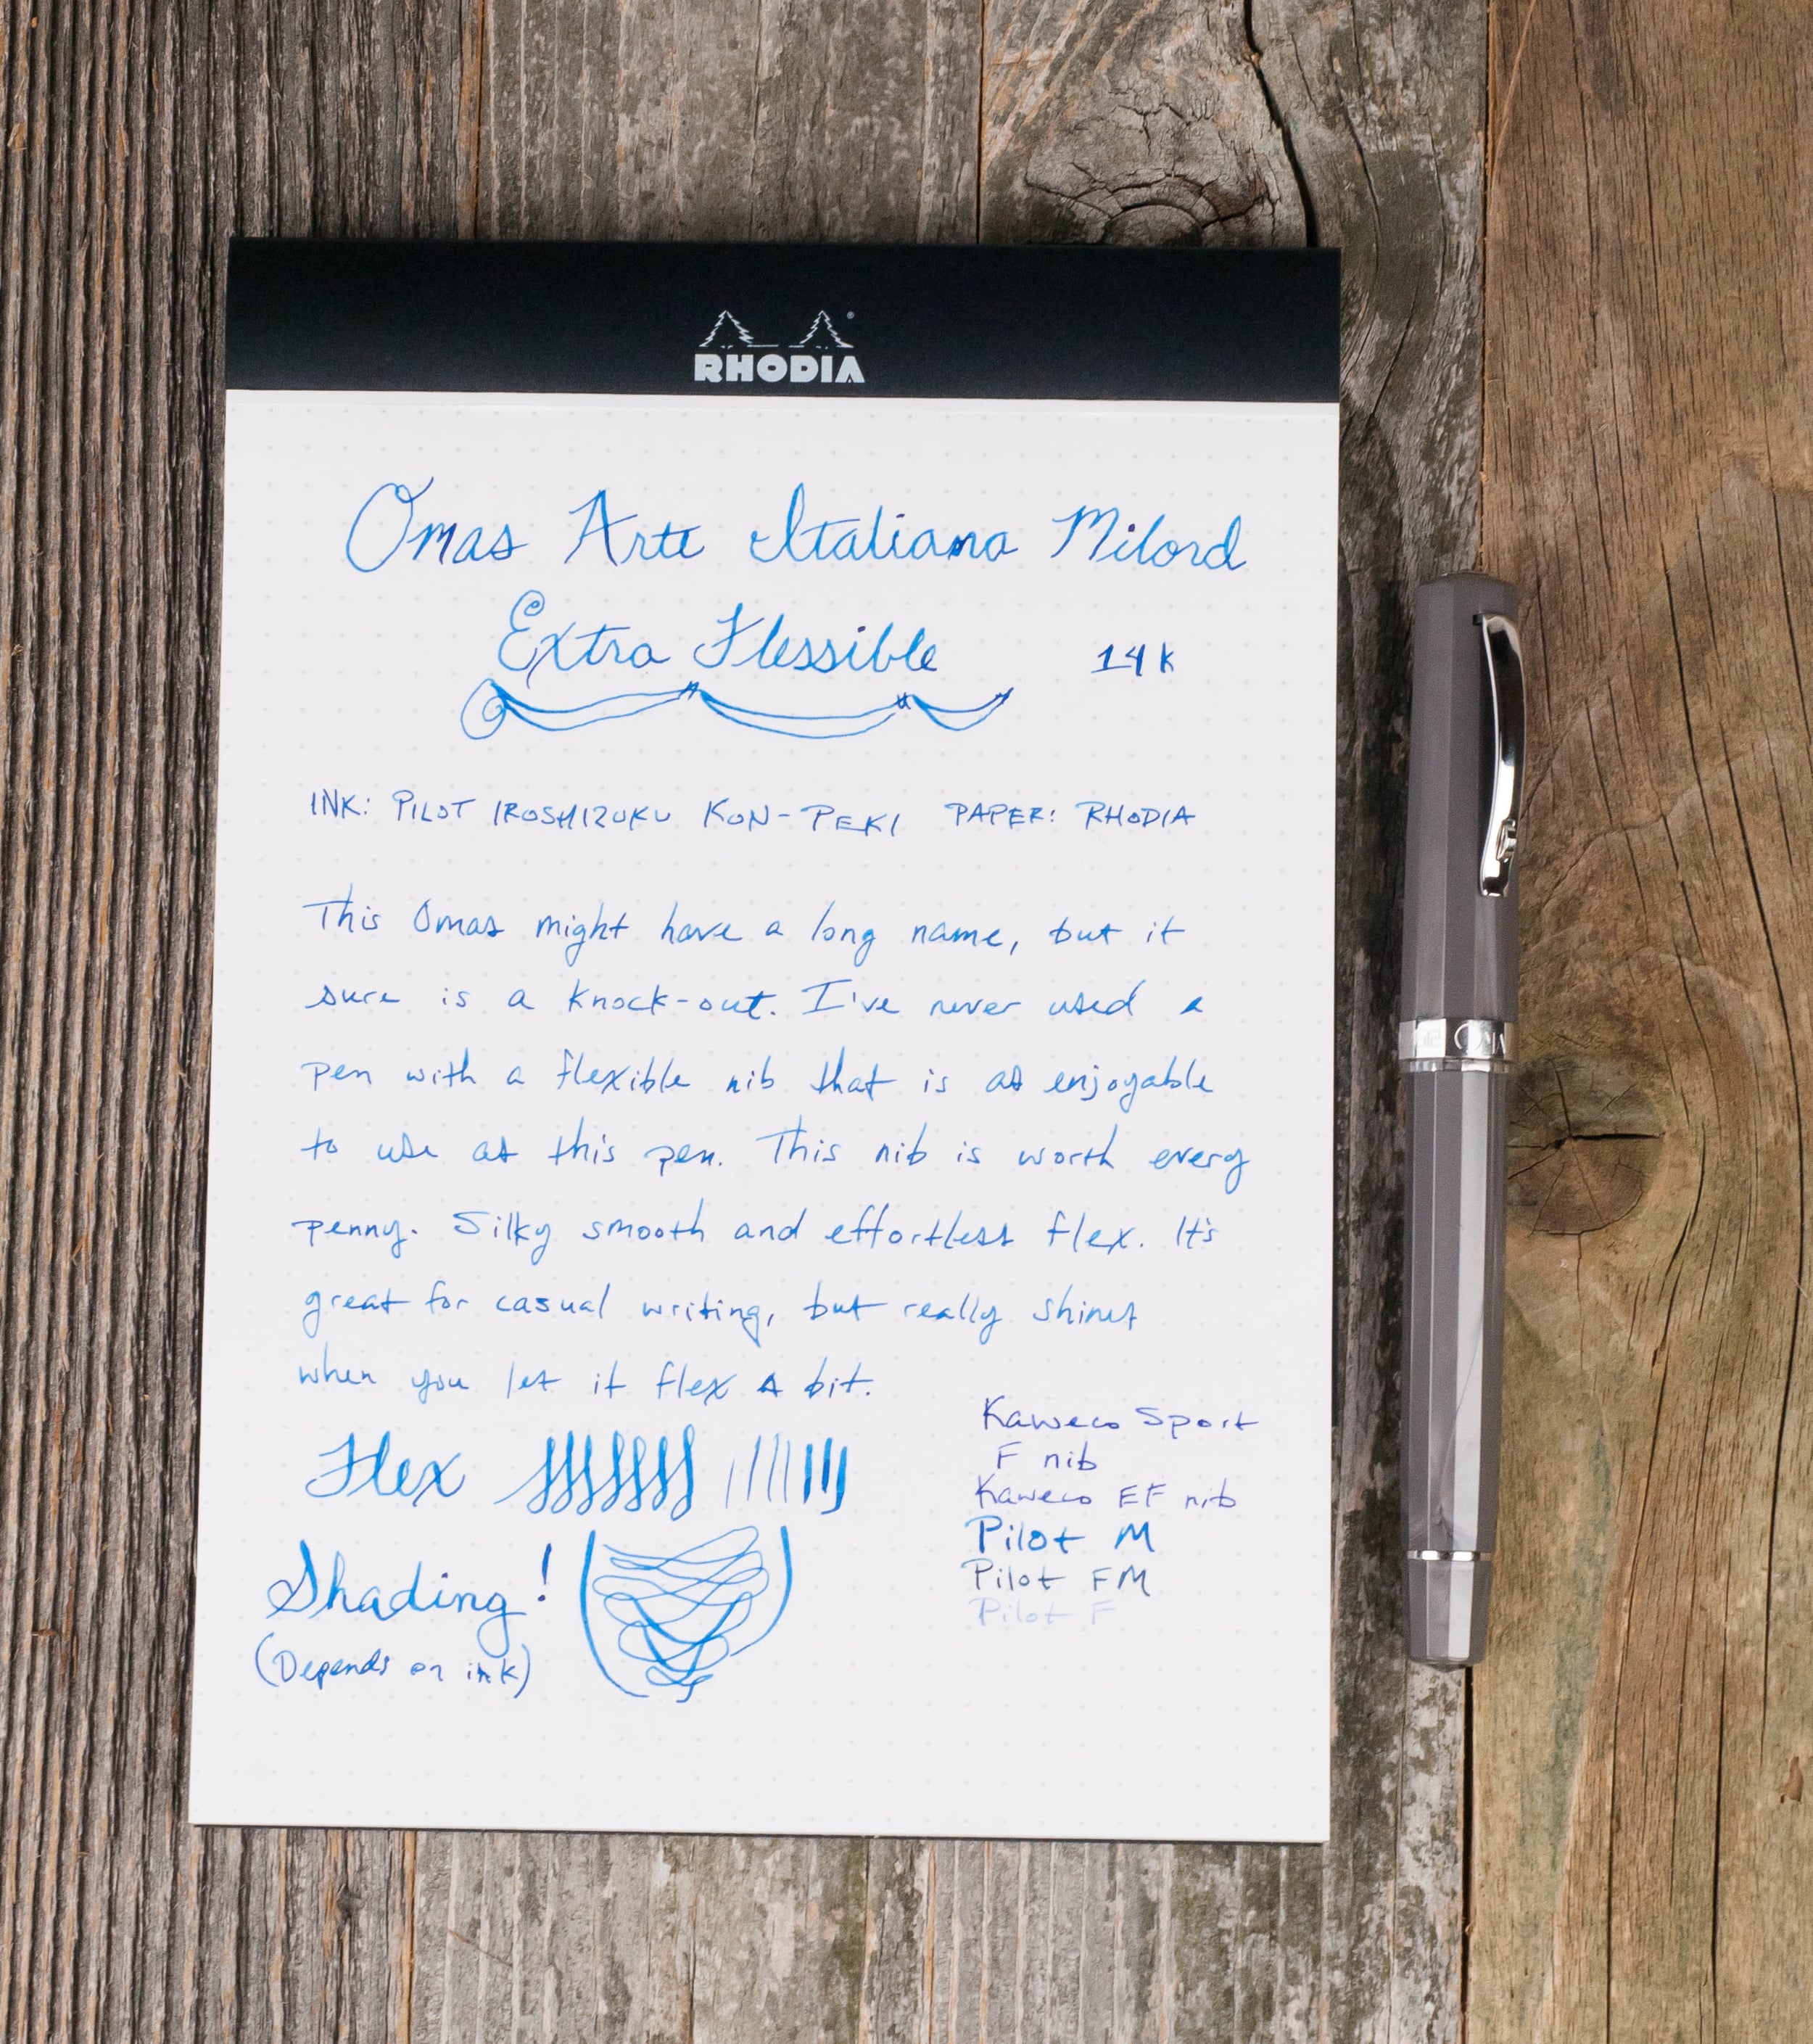 RHODIA
Omas Arte Italiana Milord
Extra Flessible 14k
INK: PILOT IROSHIZUKU KON-PEKI PAPER: RHODIA
This Omas might have a long name, but it
sure is a knock-out. I've never used a
pen with a flexible nib that is as enjoyable
to use as this pen. This nib is worth every
penny. Silky smooth and effortless flex. It's
great for casual writing, but really shines
when you let it flex a bit.
Flex
Shading!
(Depends on ink)
Kaweco Sport
F nib
Kaweco EF nib
Pilot M
Pilot FM
Pilot F